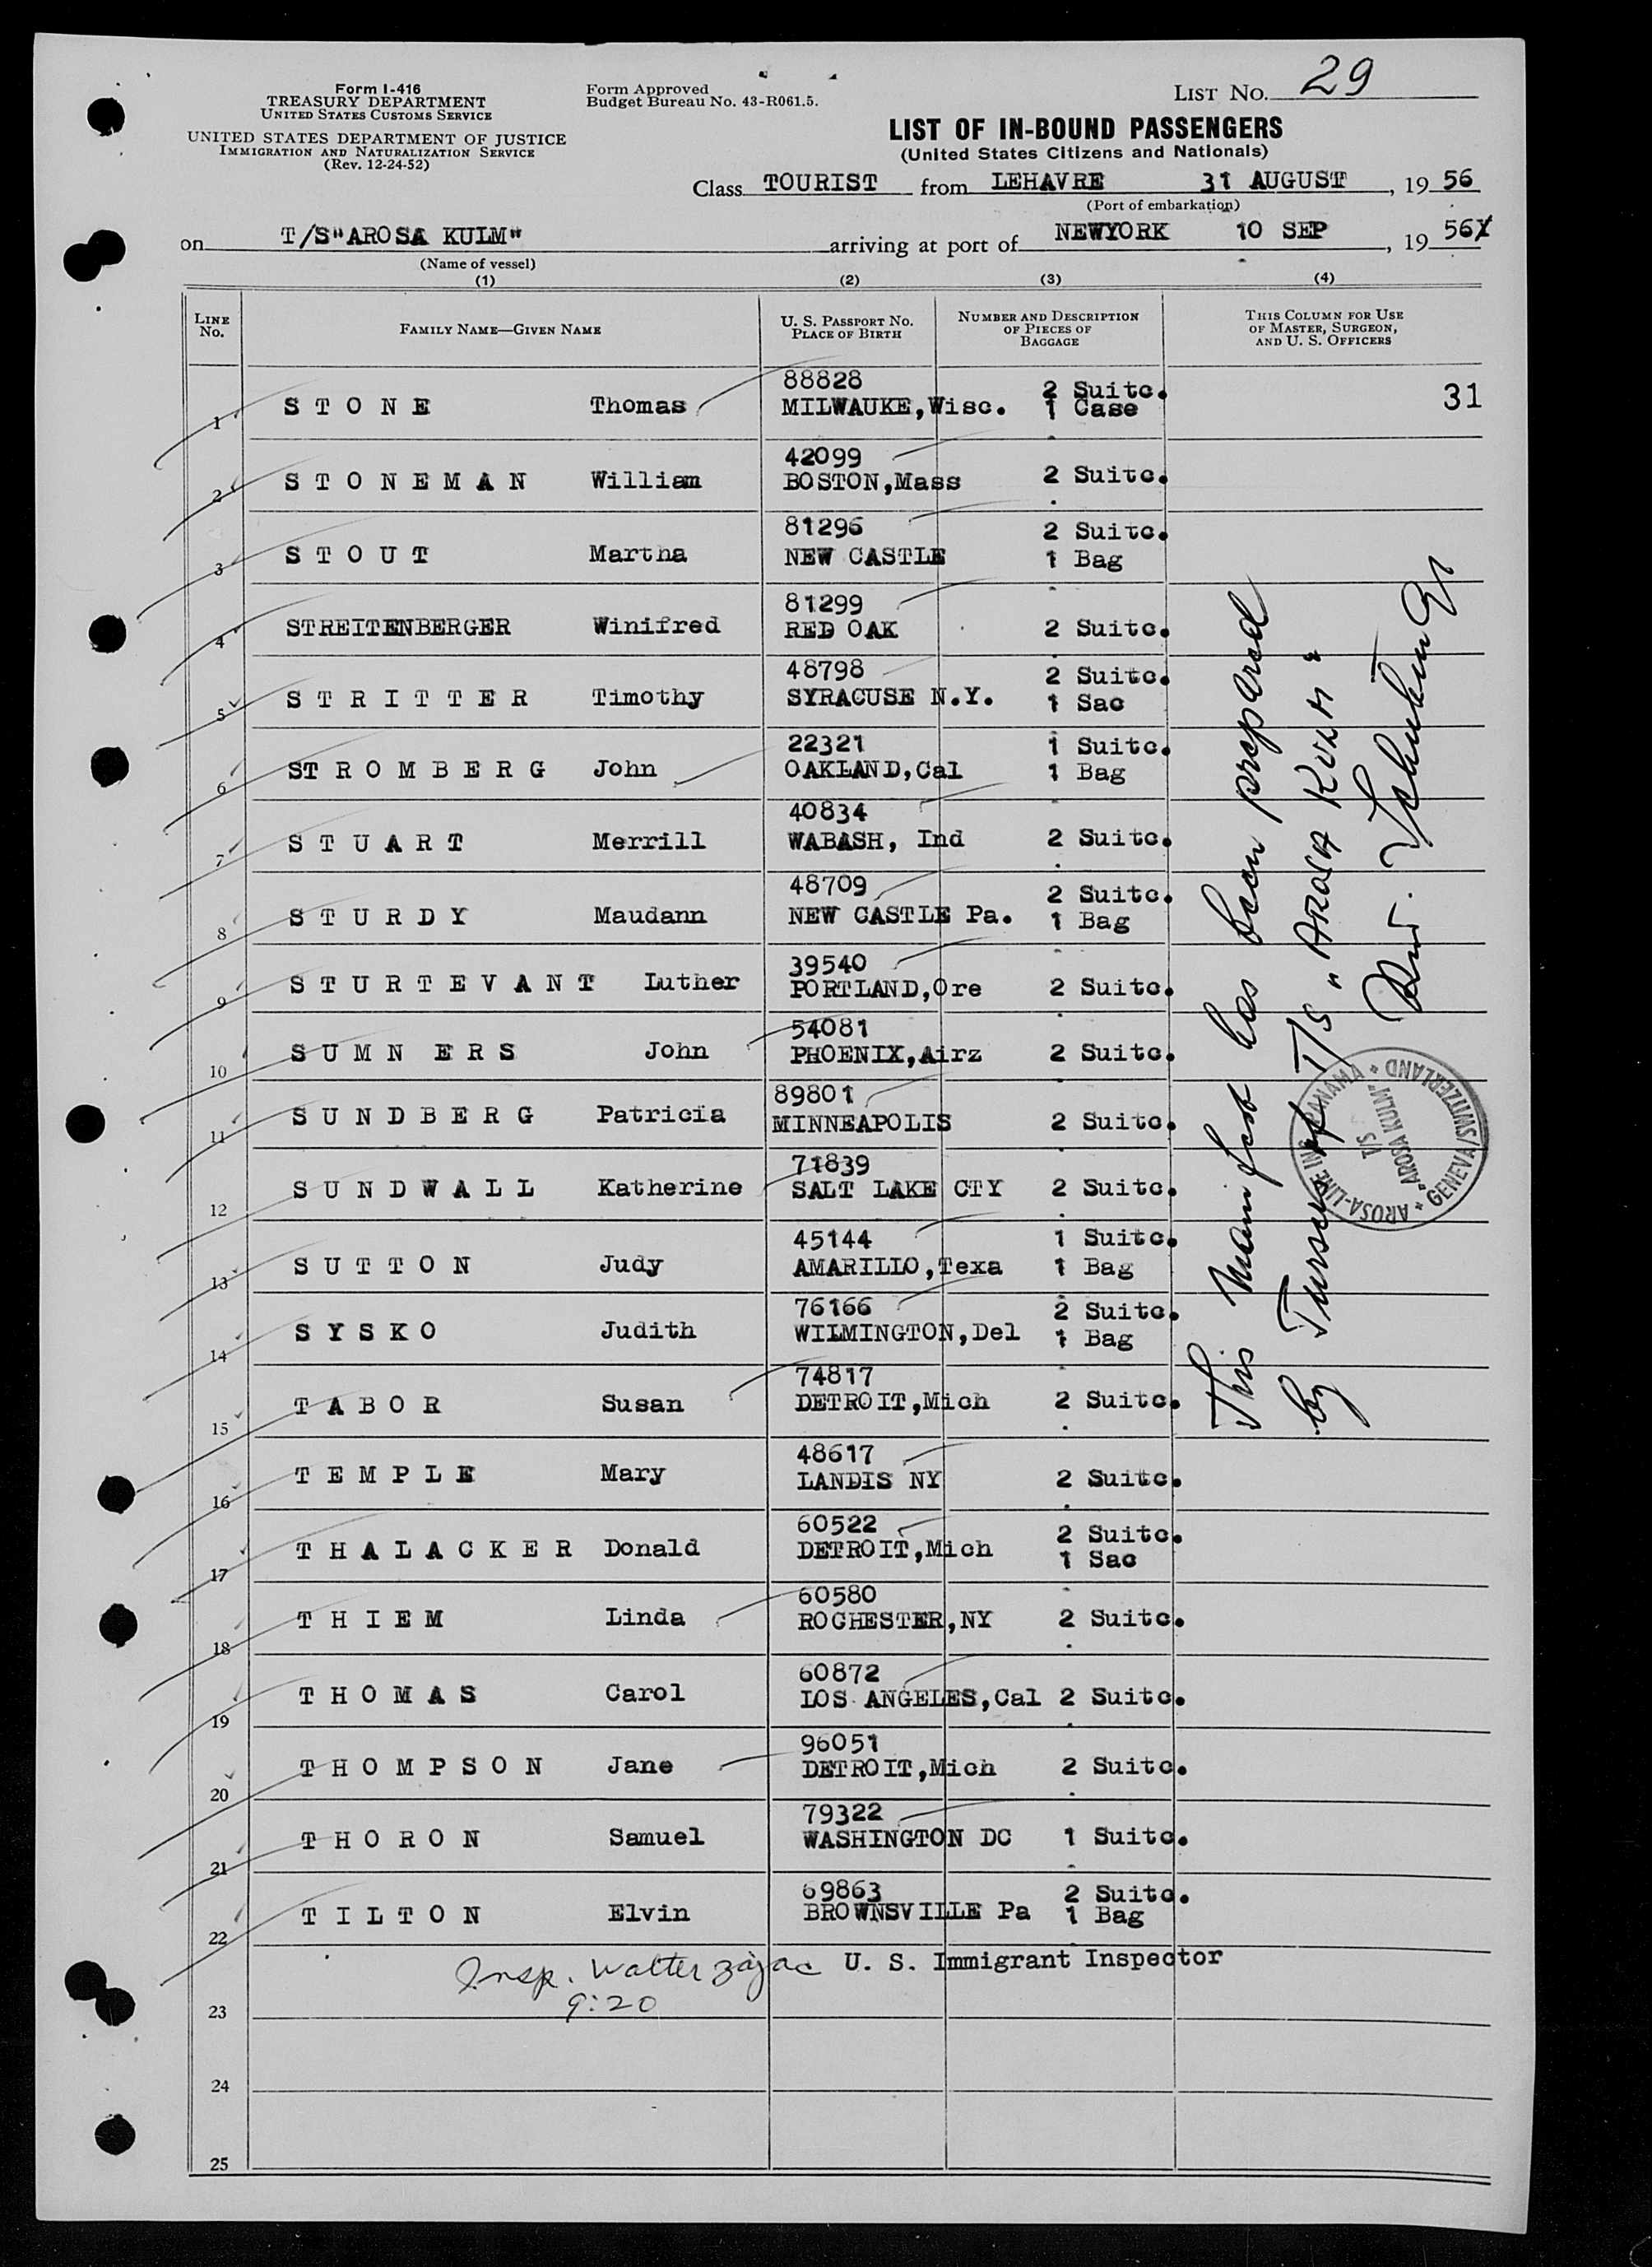 Form I-416
TREASURY DEPARTMENT
UNITED STATES CUSTOMS SERVICE
UNITED STATES DEPARTMENT OF JUSTICE
IMMIGRATION AND NATURALIZATION SERVICE
(Rev. 12-24-52)
Form Approved
Budget Bureau No. 43-R061.5.
LIST NO. 29
LIST OF IN-BOUND PASSENGERS
(United States Citizens and Nationals)
Class TOURIST from LEHAVRE 31 AUGUST, 19 56
(Port of embarkation)
on T/S"AROSA KULM" arriving at port of NEWYORK 10 SEP, 19 56
(Name of vessel)
(1) (2) (3) (4)
LINE No. FAMILY NAME—GIVEN NAME U. S. PASSPORT NO. PLACE OF BIRTH NUMBER AND DESCRIPTION OF PIECES OF BAGGAGE THIS COLUMN FOR USE OF MASTER, SURGEON, AND U. S. OFFICERS
1 STONE Thomas 88828 MILWAUKE,Wisc. 2 Suitc. 1 Case 31
2 STONEMAN William 42099 BOSTON,Mass 2 Suitc.
3 STOUT Martha 81296 NEW CASTLE 2 Suitc. 1 Bag
4 STREITENBERGER Winifred 81299 RED OAK 2 Suitc.
5 STRITTER Timothy 48798 SYRACUSE N.Y. 2 Suitc. 1 Sac
6 STROMBERG John 22321 OAKLAND,Cal 1 Suitc. 1 Bag
7 STUART Merrill 40834 WABASH, Ind 2 Suitc.
8 STURDY Maudann 48709 NEW CASTLE Pa. 2 Suitc. 1 Bag
9 STURTEVANT Luther 39540 PORTLAND,Ore 2 Suitc.
10 SUMN ERS John 54081 PHOENIX,Airz 2 Suitc.
11 SUNDBERG Patricia 89801 MINNEAPOLIS 2 Suitc.
12 SUNDWALL Katherine 71839 SALT LAKE CTY 2 Suitc.
13 SUTTON Judy 45144 AMARILLO,Texa 1 Suitc. 1 Bag
14 SYSKO Judith 76166 WILMINGTON,Del 2 Suitc. 1 Bag
15 TABOR Susan 74817 DETROIT,Mich 2 Suitc.
16 TEMPLE Mary 48617 LANDIS NY 2 Suitc.
17 THALACKER Donald 60522 DETROIT,Mich 2 Suitc. 1 Sac
18 THIEM Linda 60580 ROCHESTER,NY 2 Suitc.
19 THOMAS Carol 60872 LOS ANGELES,Cal 2 Suitc.
20 THOMPSON Jane 96051 DETROIT,Mich 2 Suitc.
21 THORON Samuel 79322 WASHINGTON DC 1 Suitc.
22 TILTON Elvin 69863 BROWNSVILLE Pa 2 Suitc. 1 Bag
Insp. Walter Zajac U. S. Immigrant Inspector
9:20
23
24
25
This Manifest has been prepared
by Purser of T/S "AROSA KULM"
AROSA-LINE INC PANAMA * GENEVA/SWITZERLAND *
T/S
"AROSA KULM"